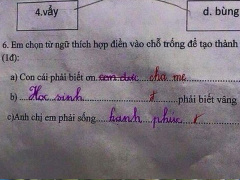 4.vẫy d. bùng
6. Em chọn từ ngữ thích hợp điền vào chỗ trống để tạo thành
(1đ):
a) Con cái phải biết ơn. con cháu cha mẹ
b) Học sinh phải biết vâng
c)Anh chị em phải sống hành phúc